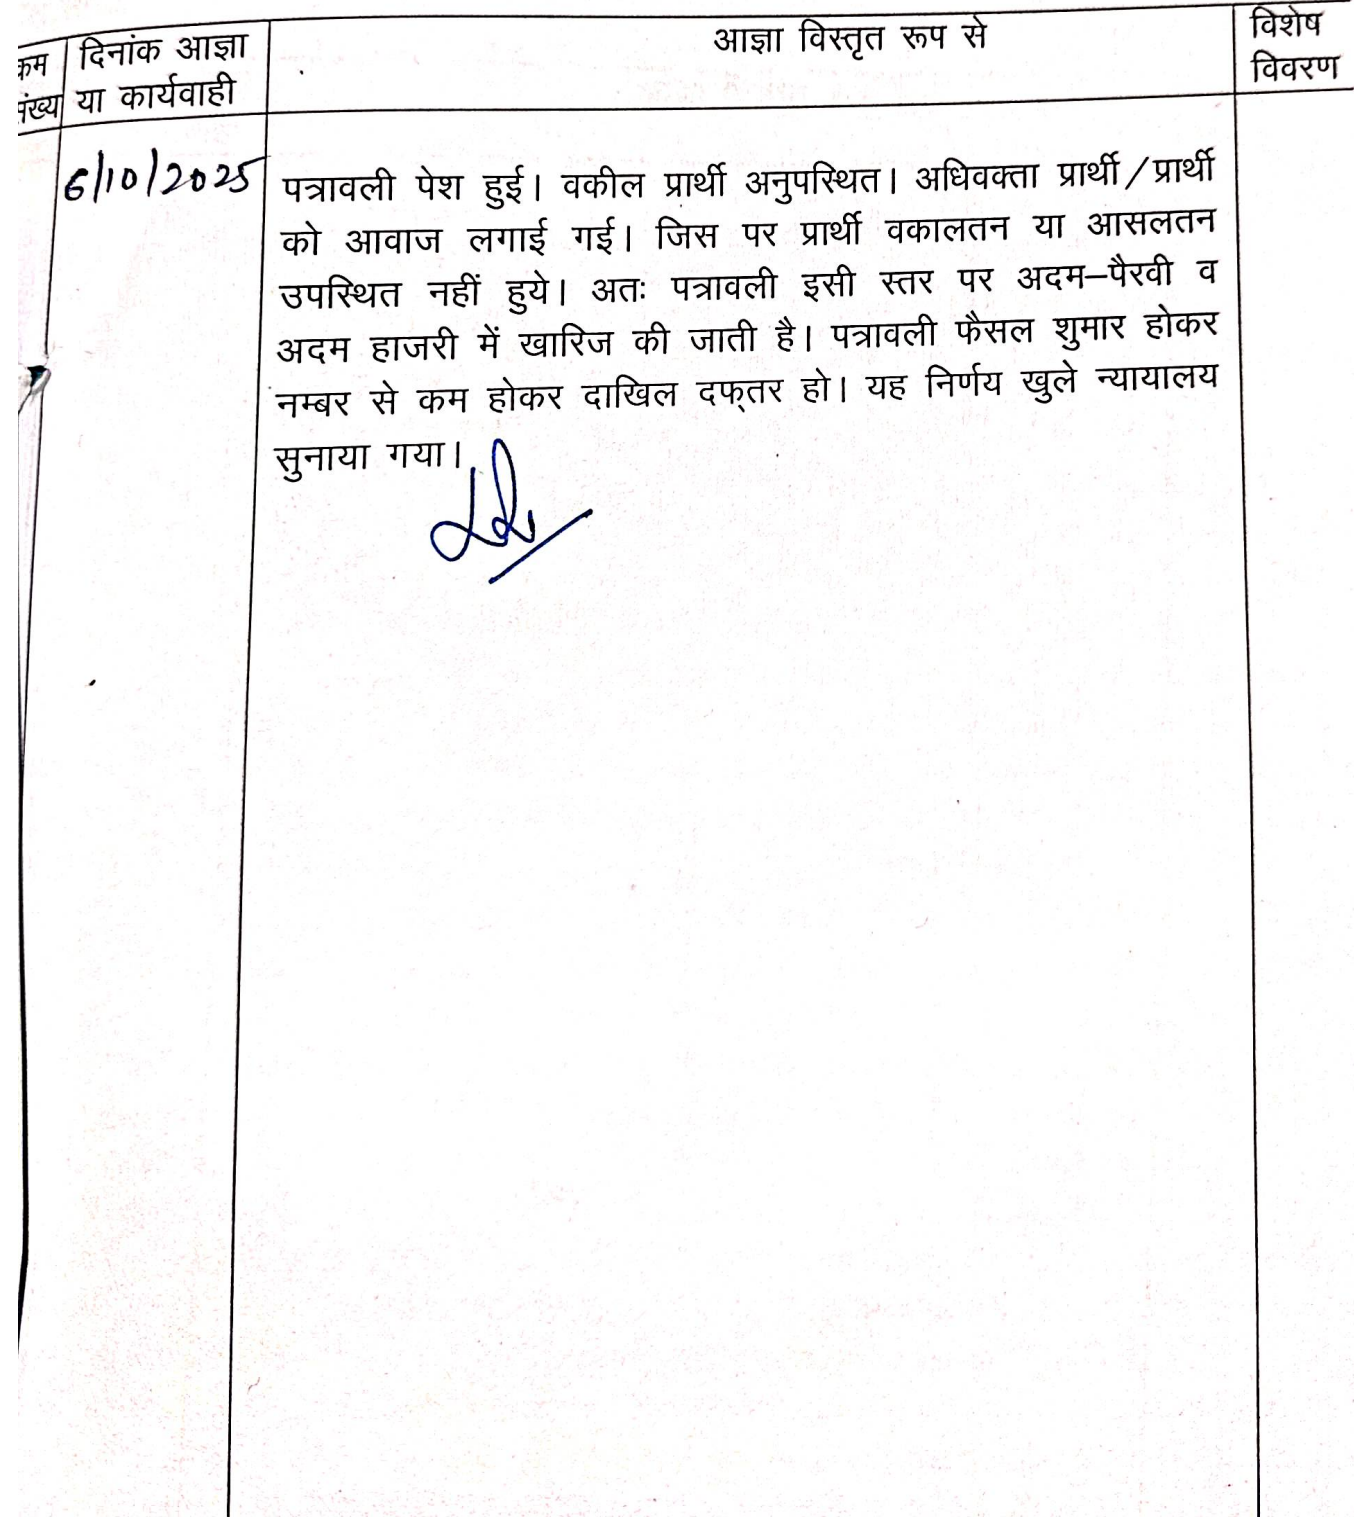 क्रम संख्य
दिनांक आज्ञा
या कार्यवाही
आज्ञा विस्तृत रूप से
विशेष
विवरण
6/10/2025
पत्रावली पेश हुई। वकील प्रार्थी अनुपस्थित। अधिवक्ता प्रार्थी/प्रार्थी
को आवाज लगाई गई। जिस पर प्रार्थी वकालतन या आसलतन
उपस्थित नहीं हुये। अतः पत्रावली इसी स्तर पर अदम–पैरवी व
अदम हाजरी में खारिज की जाती है। पत्रावली फैसल शुमार होकर
नम्बर से कम होकर दाखिल दफ्तर हो। यह निर्णय खुले न्यायालय
सुनाया गया।